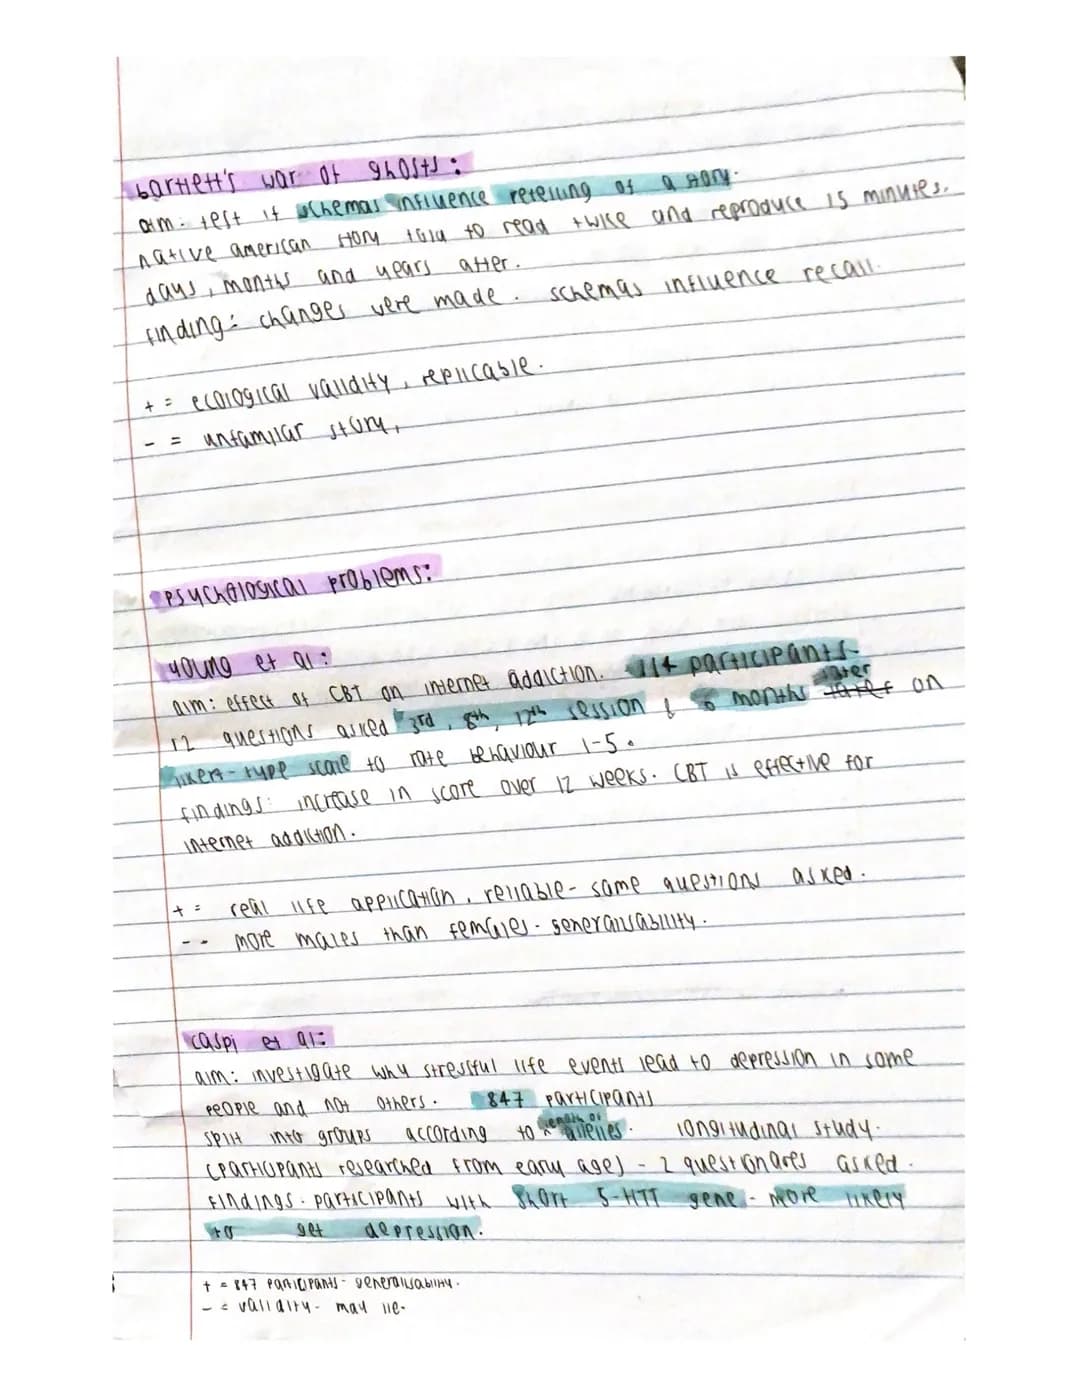 bartlett's war of ghosts:
aim: test if schemas influence retelling of a story.
native american story told to read twice and reproduce 15 minutes,
days, months and years after.
finding: changes were made. schemas influence recall.
+ = ecological validity, replicable.
- = unfamilar story,
psychological problems:
young et al:
aim: effect of CBT on internet addiction. 114 participants
12 questions asked 3rd, 8th, 12th session & 6 months later on
likert-type scale to rate behaviour 1-5.
findings: increase in score over 12 weeks. CBT is effective for
internet addiction.
+ = real life application, reliable- same questions asked.
-- more males than females- generalisability.
caspi et al:
aim: investigate why stressful life events lead to depression in some
people and not others. 847 participants
split into groups according to length of alleles. longitudinal study.
(participants researched from early age) - 2 questionares asked.
findings. participants with short 5-HTT gene - more likely
to get depression.
+ = 847 participants- generalisability.
- = validity- may lie-